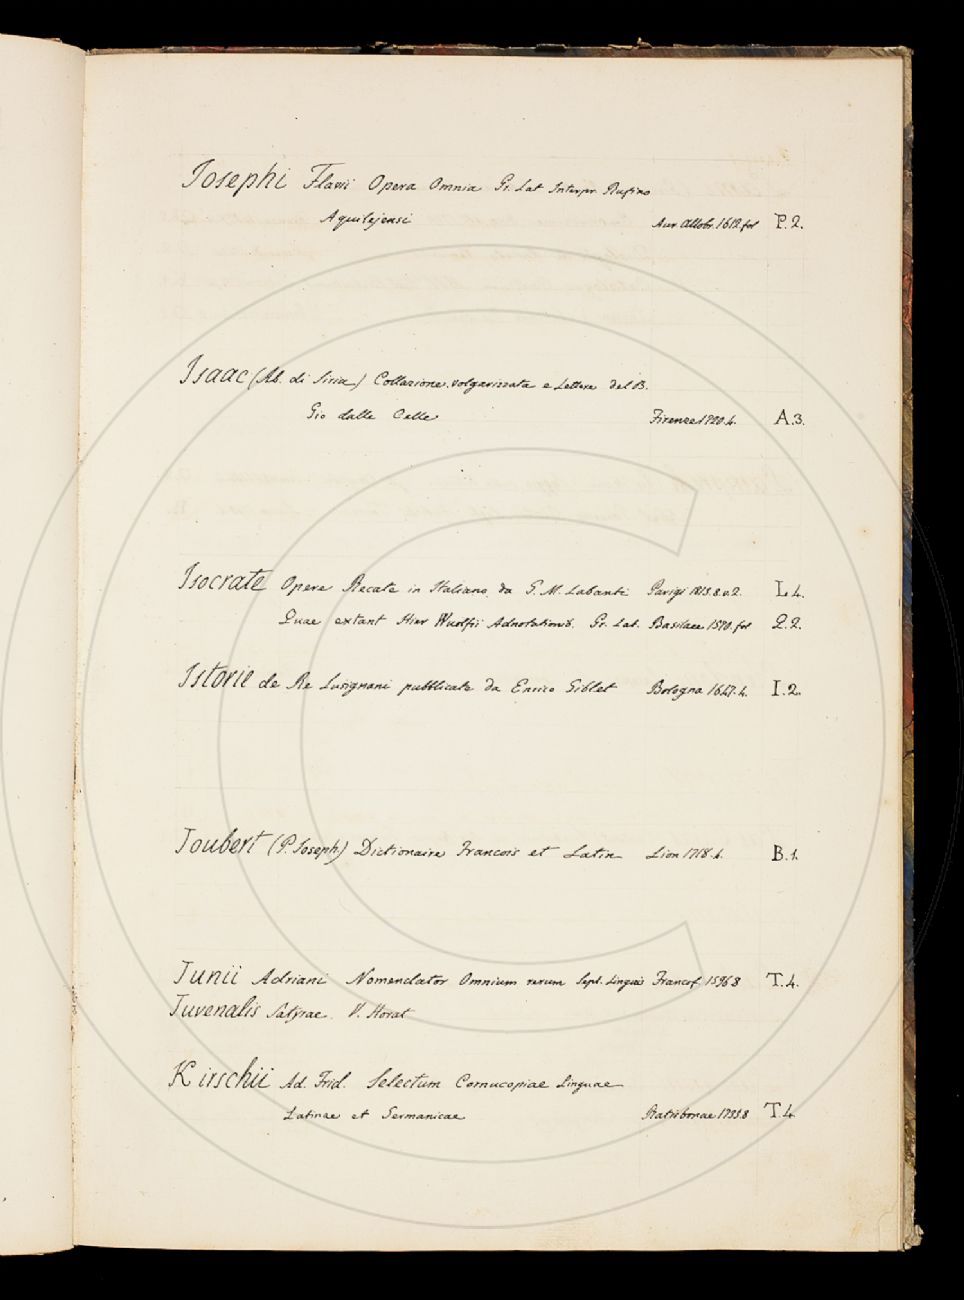 Josephi Flavii Opera Omnia Gr. Lat Interpr. Rufino
Aquilejensi Aur. Allobr. 1612. fol P. 2.
Isaac (Ab. di Siria) Collazione volgarizzata e Lettere del B.
Gio dalle Celle Firenze 1720. 4. A. 3.
Isocrate Opere Recate in Italiano da G. M. Labanti Parigi 1813. 8. v. 2. L. 4.
Quae extant Hier Wuolfii Adnotationib. Gr. Lat. Basileae 1570. fol Q. 2.
Istorie de Re Lusignani pubblicate da Enrico Giblet Bologna 1647. 4. I. 2.
Joubert (P. Joseph) Dictionaire Francois et Latin Lion 1718. 4. B. 1.
Junii Adriani Nomenclator Omnium rerum Sept. Linguis Francof. 1596 8 T. 4.
Juvenalis Satyrae. V. Horat
Kirschii Ad. Frid. Selectum Cornucopiae Linguae
Latinae et Germanicae Ratisbonae 1755. 8 T. 4.